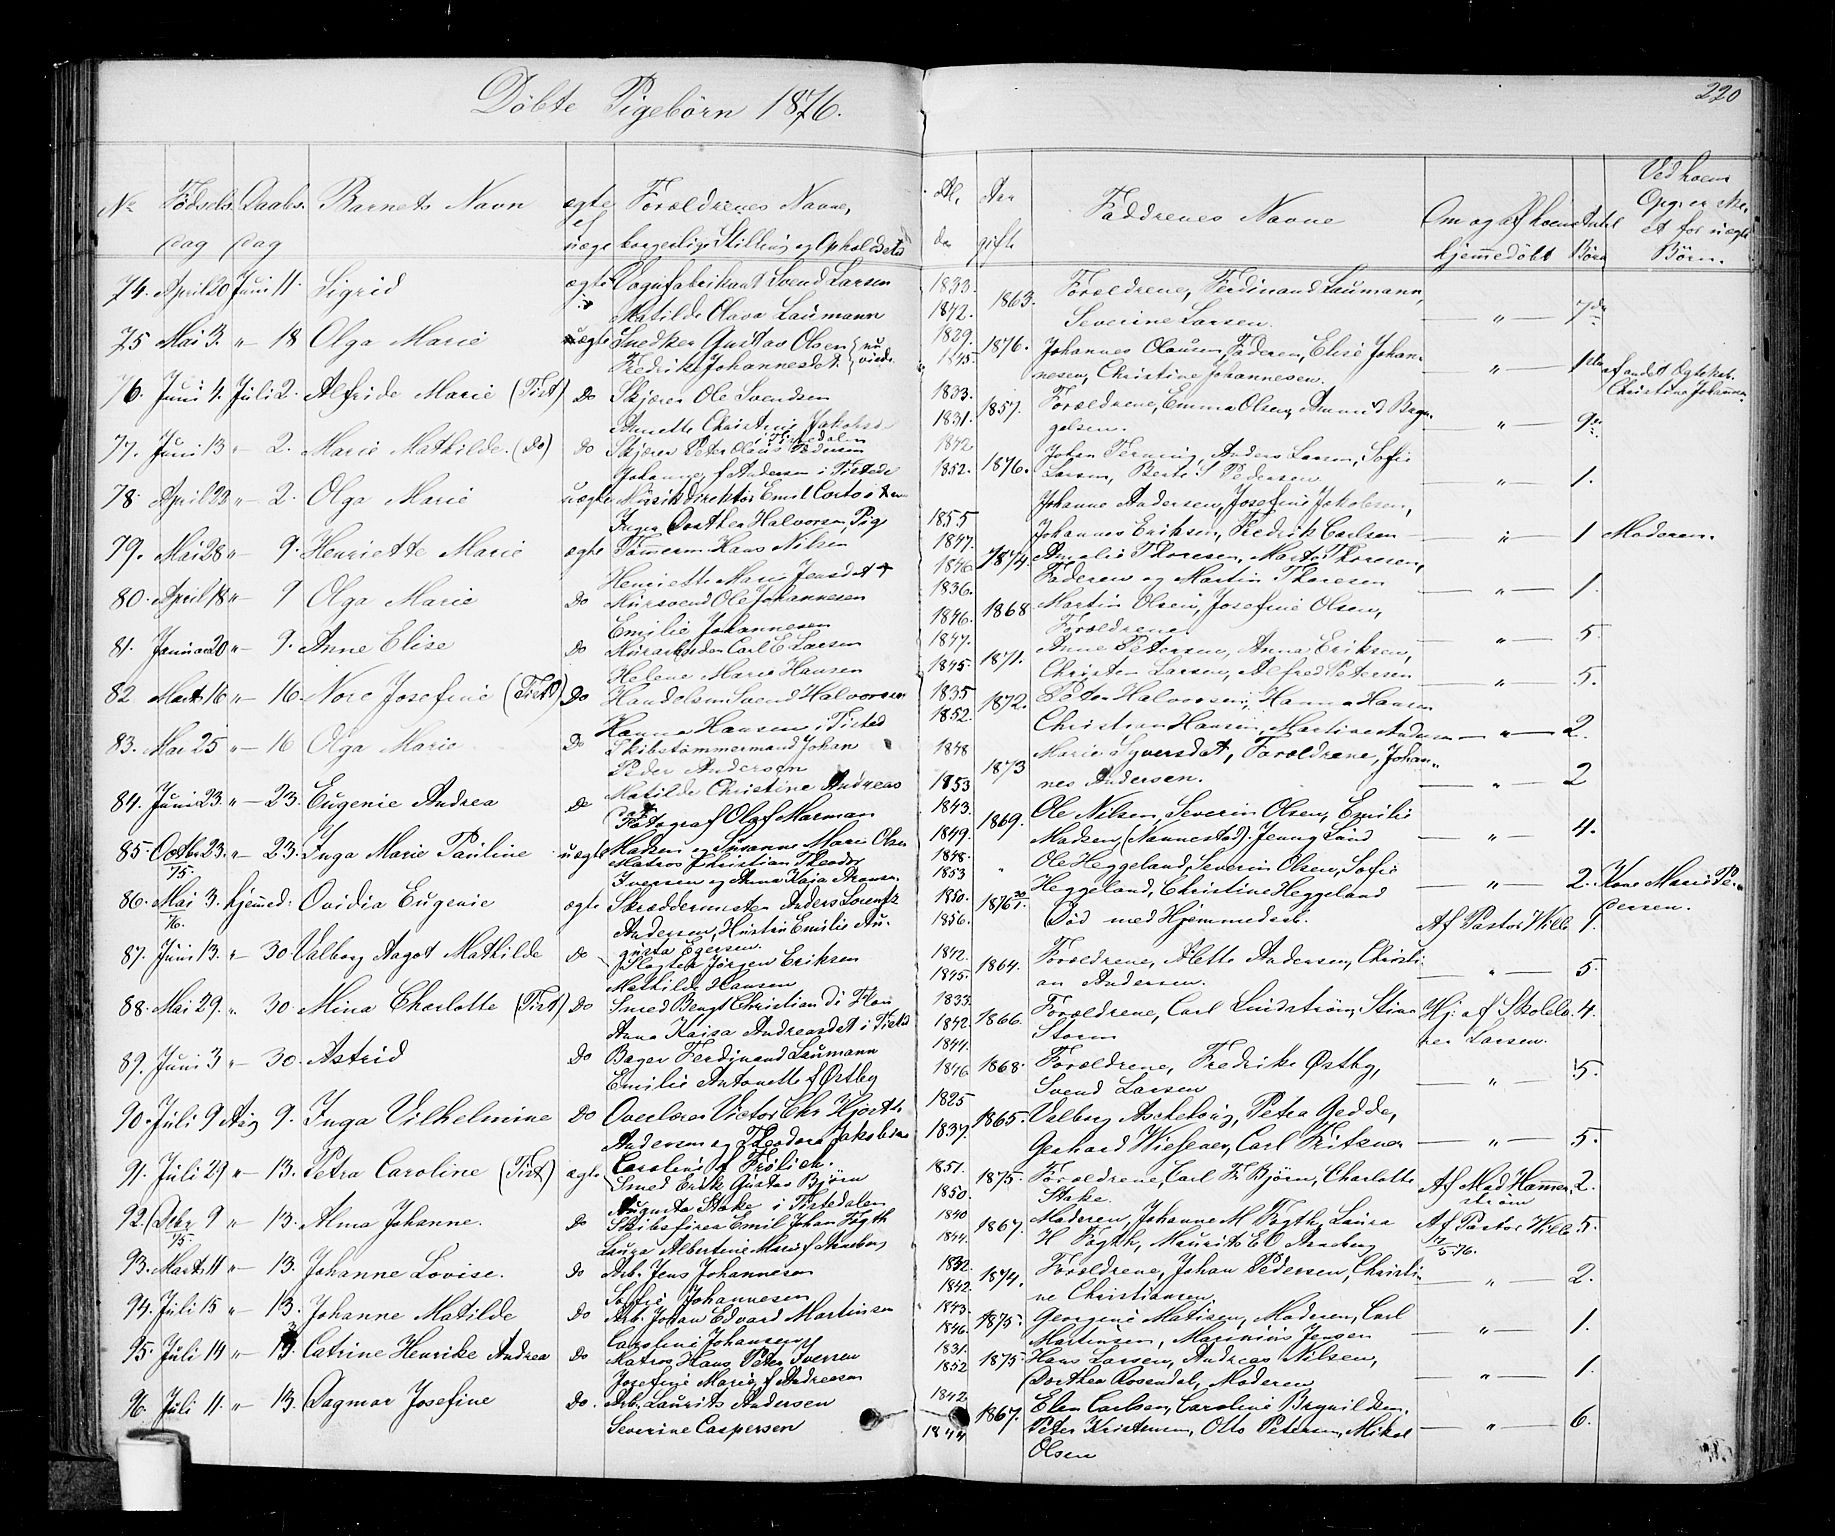 Döbte Pigebörn 1876.
220
No Födsels dag Daabs dag Barnets Navn ægte el uægte Forældrenes Navne, borgerlige Stilling og Opholdssted Al der Aar gift Faddrenes Navne Om og af hvem hjemmedöbt Antal Börn Ved hvem Opg. er skeet for uægte Börn.
74. April 20 Juni 11. Sigrid ægte Svend Larsen 1833. 1863. Forældrene, Ferdinand Laumann, — " — 7de
Matilde Olava Laumann 1842. Severine Larsen.
75 Mai 3. " 18 Olga Marie uægte Snedker Gustav Olsen 1839. 1876. Johannes Olausen, Faderen, Elise Johan- — " — 1ste af andet Ægtesk.
Fredrikke Johannesdat. 1845. nesen, Christine Johannesen. Christine Johannesen
76. Juni 4. Juli 2. Alfride Marie (Tist) Do Skjærer Ole Svendsen 1833. 1857. Forældrene, Emma Olsen, Amund — " — 9de
Annette Christine Jakobsd. i Tistedalen 1831. gelsen.
77. Juni 13 " 2. Marie Mathilde. (Do) Do Skjærer Peter Olaus Pedersen 1842 1876. Johan Anders Larsen, Sofie — " — 1.
Johanne f Andersen i Tistedl 1852. Larsen, Berte S Pedersen,
78. April 22 " 2. Olga Marie uægte Musikdirektör Emil Johanne Andersen, Josefine Jakobsen,
Inger Dorthea Halvorsen, Pige 1855 Johannes Eriksen, Fredrik Carlsen — " — 1 Moderen.
79. Mai 28 " 9. Henriette Marie ægte Tömerm. Hans Nilsen 1847. 1874. Amalie Thoresen, Marte Thoresen,
Henriette Marie Jensdat 1846. Faderen og Martin Thoresen — " — 1.
80. April 18 " 9 Olga Marie Do Mursvend Ole Johannesen 1836. 1868 Martin Olsen, Josefine Olsen,
Emilie Johannesen 1846. Forældrene. — " — 5.
81. Januar 20 " 9. Anne Elise Do Murarbeider Carl E Larsen 1847. 1871. Anne Petersen, Anna Eriksen,
Helene Marie Hansen 1845. Christen Larsen, Alfred Petersen — " — 5.
82 Marts 16 " 16. Nora Josefine (Tist) Do Handelsm Svend Halvorsen 1835 1872. Peter Halvorsen, Hanna Hansen
Hanna Hansen i Tisted 1852. Christian Hansen, Martine Andersen — " — 2.
83. Mai 25 " 16 Olga Marie Do Skibstömmermand Johan 1848 1873 Marie Syversdat, Forældrene, Johan-
Peder Andersen
Matilde Christine Andreas 1853 nes Andersen. — " — 2
84. Juni 23. " 23. Eugenie Andrea Do Fotograf Olaf Marman 1843. 1869. Ole Nilsen, Severin Olsen, Emilie
Madsen og Susanne Marie Olsen 1849. Madsen, (Nannestad). Jenny Lund — " — 4.
85. Octbr 23. 75. " 23. Inga Marie Pauline uægte Matros Christian Theodor 1848. " Ole Heggeland, Severin Olsen, Sofie
Iversen og Anna Kaja 1853 Heggeland, Christine Heggeland — " — 2. Kone Marie Pe-
dersen.
86. Mai 3. 76. hjemmed: Ovidia Eugenie ægte Skræddermester Anders Lorentz 1850. 1876 Död med Hjemmedaab. Af Pastor Wille 1.
Andersen, Hustru Emilie Au- 1856.
gusta Egersen.
87. Juni 13. " 30 Valborg Aagot Mathilde Do Slagter Jörgen Eriksen 1842. 1864. Forældrene, Alette Andersen, Christi- — " — 5.
Mathilde Hansen 1845. an Andersen.
88. Mai 29. " 30. Mina Charlotte (Tist) Do Smed Bengt Christian di Flon 1833. 1866. Forældrene, Carl Lindström, Stina Hj: af Skolelæ- 4.
Anna Kaisa Andreasdat i Tisted 1842. Storm rer Larsen.
89. Juni 3 " 30. Astrid Do Bager Ferdinand Laumann 1844. 1868. Forældrene, Fredrike Østby,
Emilie Antonette f Østby 1846. Svend Larsen — " — 5.
90. Juli 9 Aug 9. Inga Vilhelmine Do Overlærer Victor Chr Hjorth 1825 1865. Valborg Petra Gedde,
Andersen og Theodora Jakobine 1837. Gerhard Wiesener, Carl Fritzner — " — 5.
Caroline f Frölich.
91. Juli 29 " 13. Petra Caroline (Tist) ægte Smed Erik Gustav Björn 1851. 1875. Forældrene, Carl Fr. Björn, Charlotte Af Mad Hammer- 2.
Augusta Stake i Tistedalen 1850. Stake. ström
92. Debr 9 75. " 13. Alma Johanne. Do Skibsförer Emil Johan Fogth 1840 1867. Moderen, Johanne M Fogth, Laura Af Pastor Wille 5.
Laura Albertine Marie f Arneberg 1844. H Fogth, Maurits E O Arneberg
93. Marts 11 " 13. Johanne Lovise. Do Arb. Jens Johannesen 1832. 1874. Forældrene, Johan Pedersen, Christi- — " — 2.
Sofie Johannesen 1842. ne Christiansen.
94. Juli 15 " 13. Johanne Matilde Do Arb. Johan Edvard Martinsen 1843. 1875. Georgine Matisen, Moderen, Carl
Caroline Johansen 1846. Martinsen, Marinius Jensen — " — 1.
95. Juli 14 " 13 Catrine Henrike Andrea Do Matros Hans Peter Iversen 1831. 1875. Hans Larsen, Andreas Nilsen,
Josefine Marie f Andreasen 1852 Dorthea Rosendal, Moderen — " — 1.
96. Juli 11. " 13. Dagmar Josefine Do. Arb. Laurits Andersen 1842. 1867. Elen Carlsen, Caroline Brynildsen,
Severine Caspersen 1844 Peter Kristensen, Otto Petersen, Mikal — " — 6.
Olsen